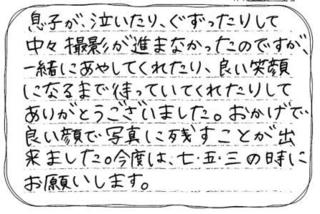 息子が、泣いたり、ぐずったりして
中々撮影が進まなかったのですが、
一緒にあやしてくれたり、良い笑顔
になるまで待っていてくれたりして
ありがとうございました。おかげで
良い顔で写真に残すことが出
来ました。今度は、七・五・三の時に
お願いします。